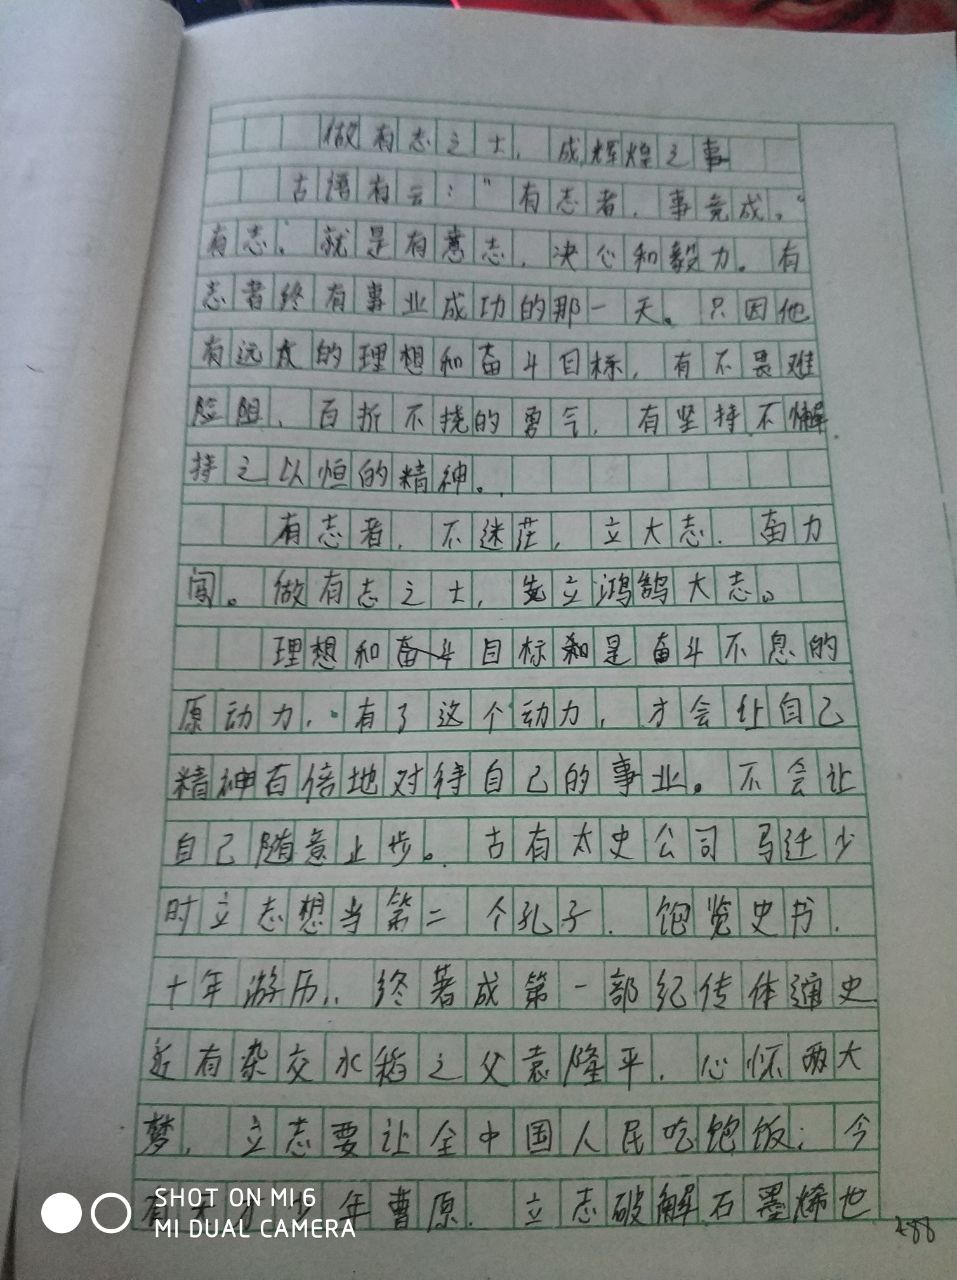 做有志之士，成辉煌之事
古语有云：“有志者，事竟成。”
有志，就是有意志，决心和毅力。有
志者终有事业成功的那一天。只因他
有远大的理想和奋斗目标，有不畏难
险阻，百折不挠的勇气，有坚持不懈
持之以恒的精神。
有志者，不迷茫，立大志，奋力
闯。做有志之士，先立鸿鹄大志。
理想和奋斗目标是奋斗不息的
原动力，有了这个动力，才会让自己
精神百倍地对待自己的事业。不会让
自己随意止步。古有太史公司马迁少
时立志想当第二个孔子，饱览史书，
十年游历，终著成第一部纪传体通史
近有杂交水稻之父袁隆平，心怀两大
梦，立志要让全中国人民吃饱饭；今
有 少年曹原，立志破解石墨烯世
488
SHOT ON MI 6
MI DUAL CAMERA